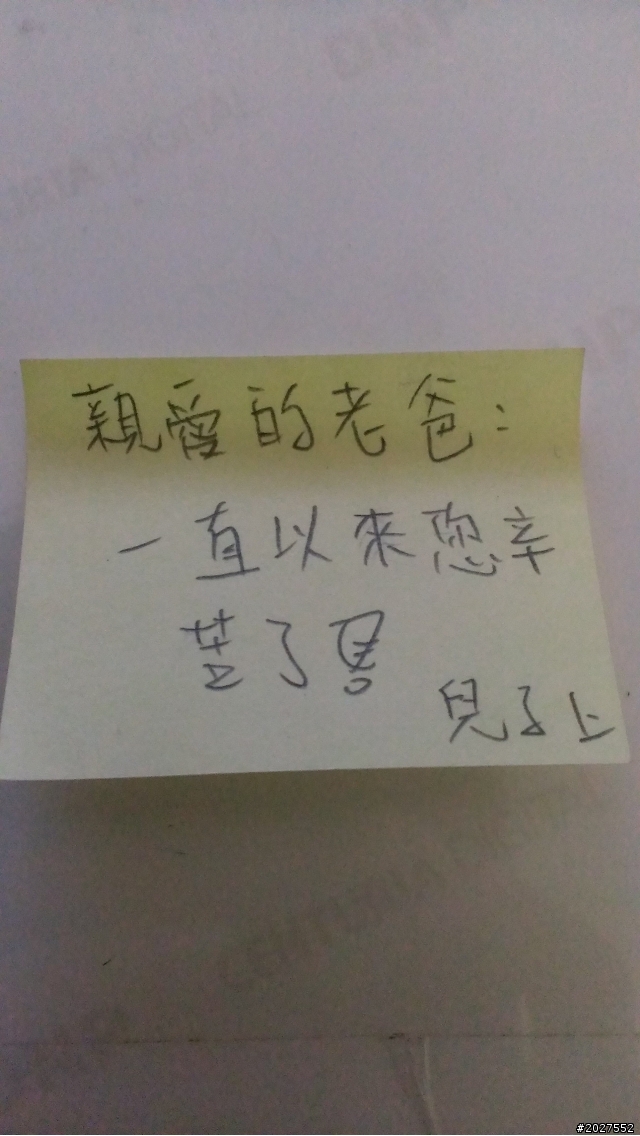 親愛的老爸:
一直以來您辛
苦了
兒子上
#2027552